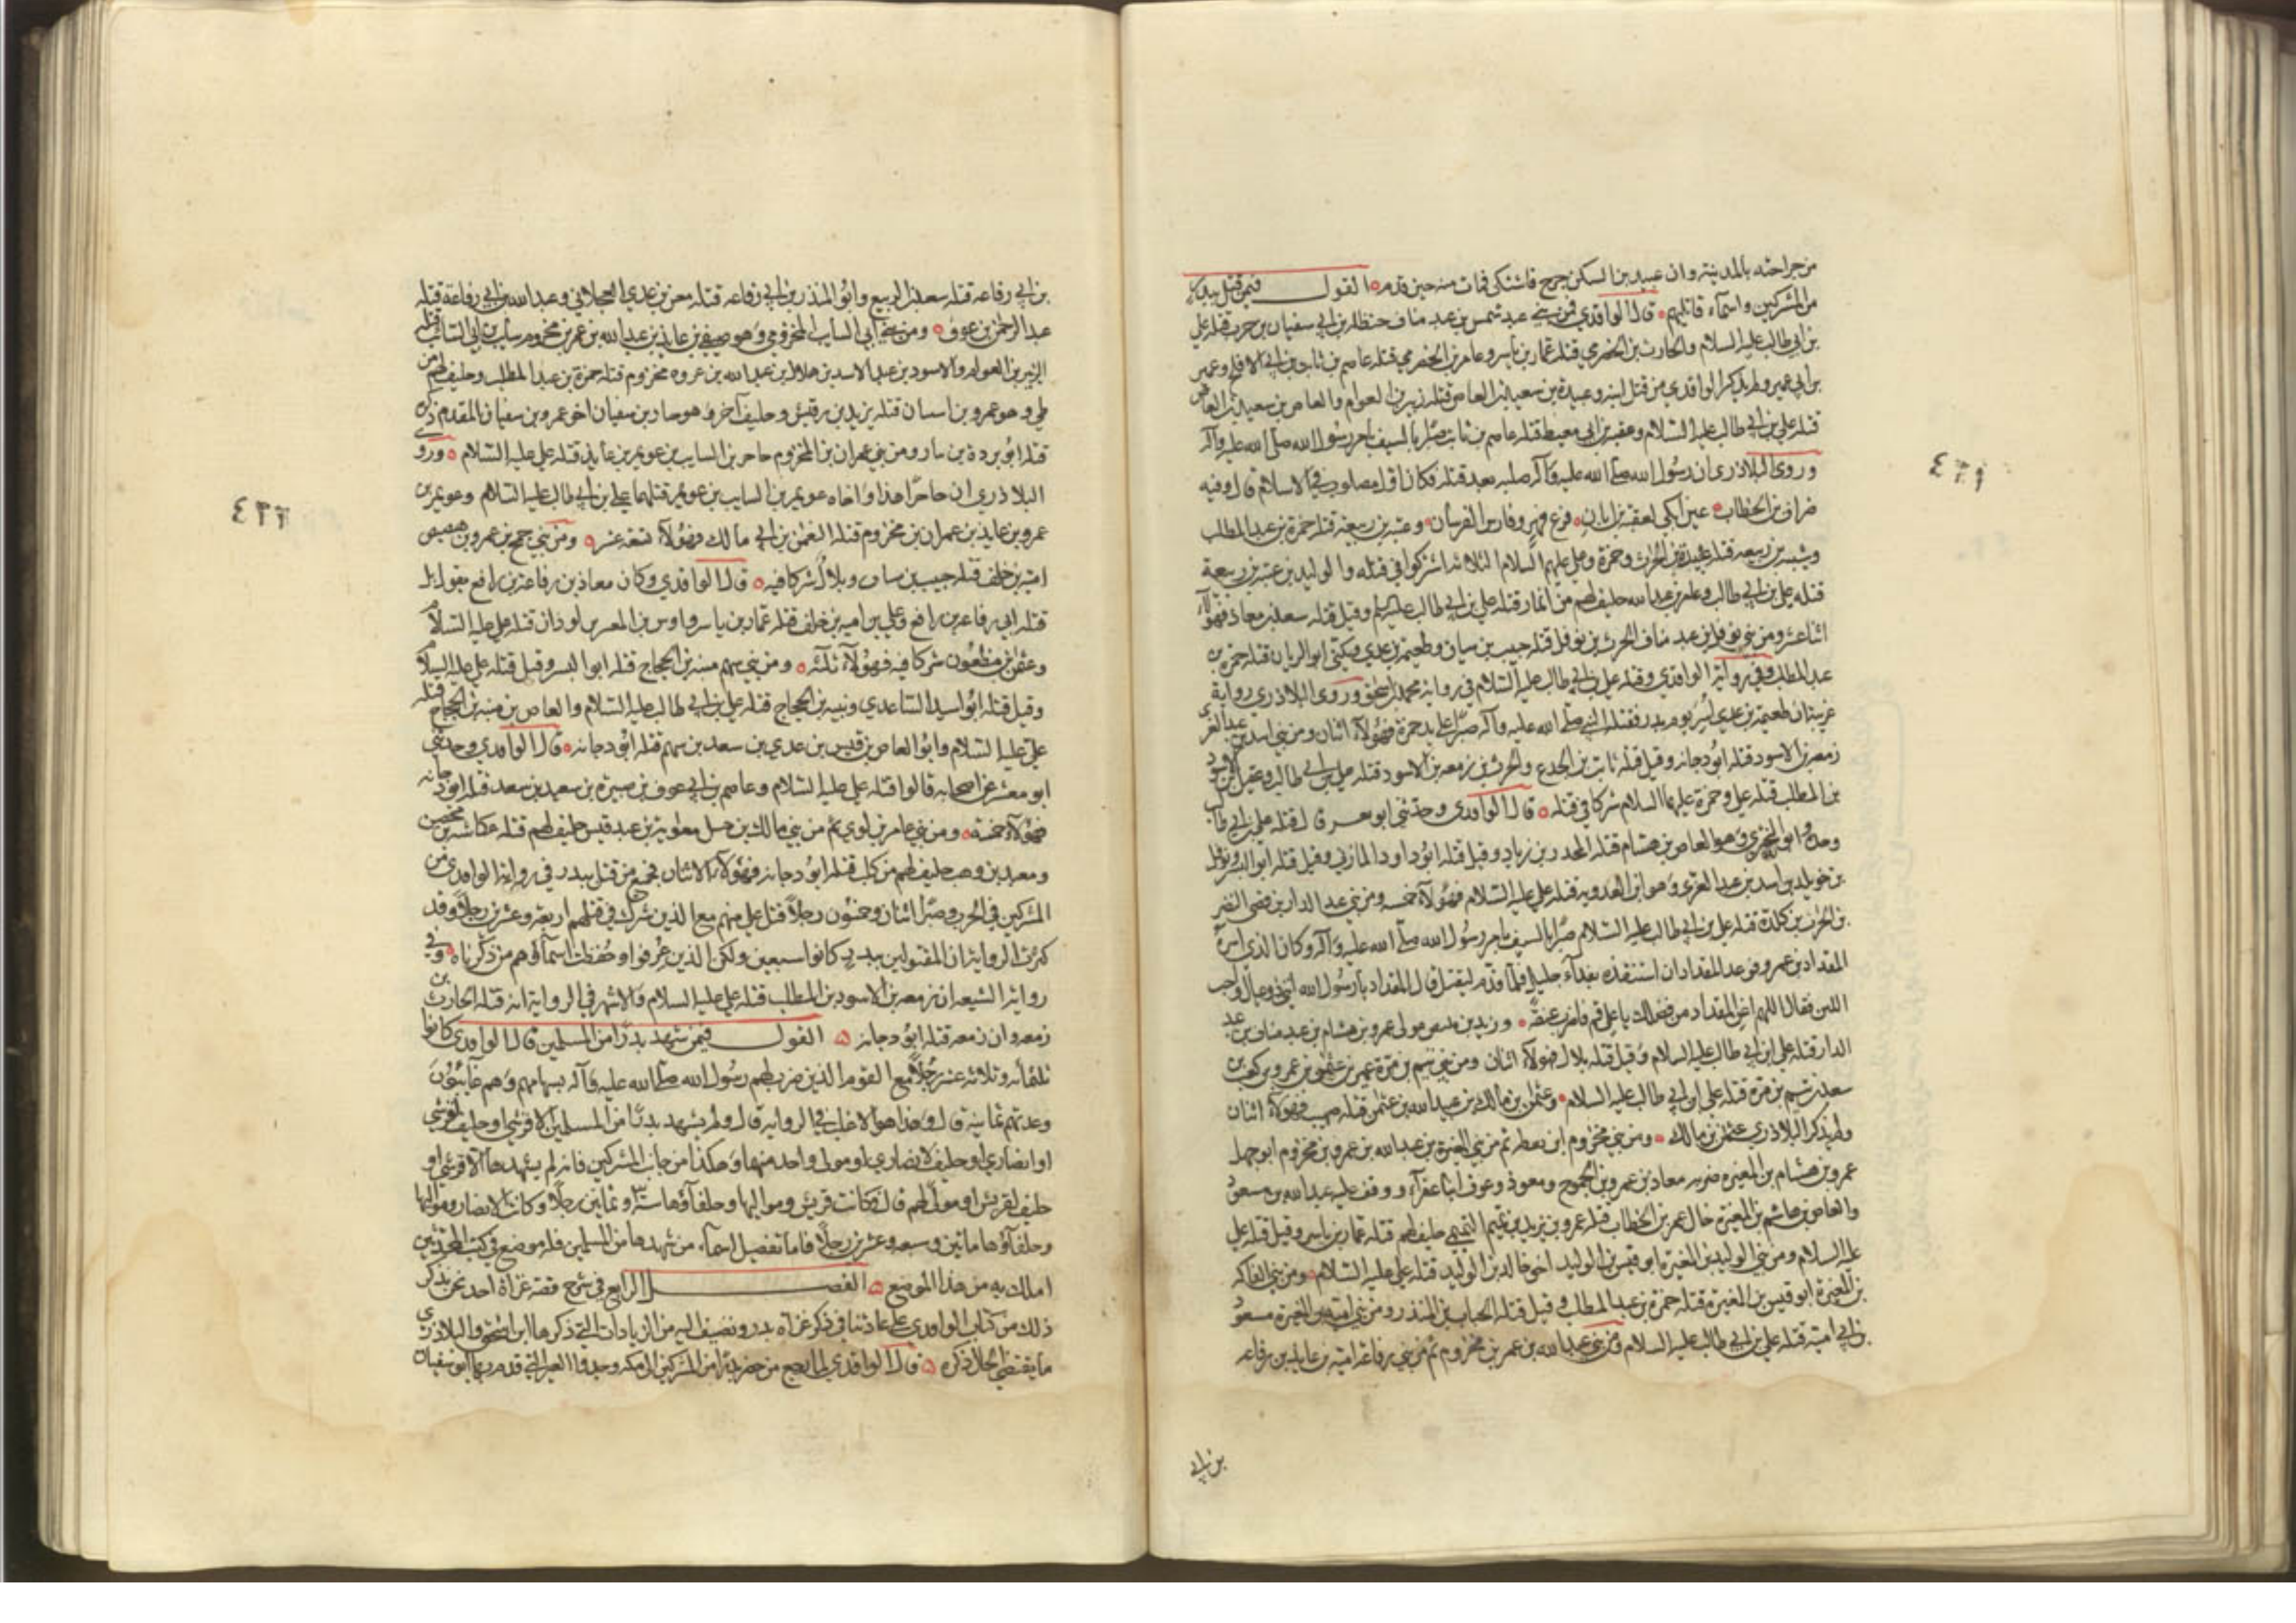 من جراحته بالمدينة وان عبيد بن السكن جرح فاشتكى فمات منه حين قدم القول فيمن قتل ببدر
من المشركين واسماء قاتليهم قال الواقدي فمن بني عبد شمس بن عبد مناف حنظلة بن ابي سفيان بن حرب قتله علي
بن ابي طالب عليه السلام والحارث بن الحضرمي قتله عمار بن ياسر وعامر بن الحضرمي قتله عاصم بن ثابت بن ابي الاقلح وعمير
بن ابي عمير ولم يذكر الواقدي من قتل ابنه وعبيدة بن سعيد بن العاص قتله زبير بن العوام والعاص بن سعيد بن العاص
قتله علي بن ابي طالب عليه السلام وعقبة بن ابي معيط قتله عاصم بن ثابت صبرا بالسيف بامر رسول الله صلى الله عليه وآله
وروى البلاذري ان رسول الله صلى الله عليه وآله صلبه بعد قتله فكان اول مصلوب في الاسلام قال وفيه
ضرار بن الخطاب عين ابكي لعقبة بن ابان فرع فهر وفارس الفرسان وعتبة بن ربيعة قتله حمزة بن عبد المطلب
وشيبة بن ربيعة قتله عبيدة بن الحرث وحمزة وعلي عليهم السلام الثلاثة اشتركوا في قتله والوليد بن عتبة بن ربيعة
قتله علي بن ابي طالب وعامر بن عبد الله حليف لهم من انمار قتله علي بن ابي طالب عليه السلام وقيل قتله سعد بن معاذ فهؤلاء
اثنا عشر ومن بني نوفل بن عبد مناف الحرث بن نوفل قتله حبيب بن سياف وطعيمة بن عدي ويكنى ابو الريان قتله حمزة بن
عبد المطلب وفي رواية الواقدي وقتله علي بن ابي طالب عليه السلام في رواية محمد بن اسحق وروى البلاذري رواية
غريبة ان طعيمة بن عدي اسر يوم بدر فقتله النبي صلى الله عليه وآله صبرا على يد حمزة فهؤلاء اثنان ومن بني اسد بن عبد العزى
زمعة بن الاسود قتله ابو دجانة وقيل قتله ثابت بن الجدع والحرث بن زمعة بن الاسود قتله علي بن ابي طالب وعقيل بن الاسود
بن المطلب قتله علي وحمزة عليهما السلام شركا في قتله قال الواقدي وحدثني ابو معسر قال قتله علي بن ابي طالب
وحده وابو البختري وهو العاص بن هشام قتله المجدر بن زياد وقيل قتله ابو داود المازني وقيل قتله ابو اليسر ونوفل
بن خويلد بن اسد بن عبد العزى وهو ابن العدوية قتله علي عليه السلام فهؤلاء خمسة ومن بني عبد الدار بن قصي النضر
بن الحرث بن كلدة قتله علي بن ابي طالب عليه السلام صبرا بالسيف بامر رسول الله صلى الله عليه وآله وكان الذي اسره
المقداد بن عمرو فوعد المقداد ان استنقذه بفداء جليل فلما قدم ليقتل قال المقداد يا رسول الله اني ذو عيال واحب
الدين فقال اللهم اغن المقداد من فضلك يا علي قم فاضرب عنقه وزيد بن مليص مولى عمرو بن هشام بن عبد مناف بن عبد
الدار قتله علي ابن ابي طالب عليه السلام وقيل قتله بلال فهؤلاء اثنان ومن بني تيم بن مرة عمير بن عثمن بن عمرو بن كعب بن
سعد بن تيم بن مرة قتله علي ابن ابي طالب عليه السلام وعثمن بن مالك بن عبيد الله بن عثمن قتله صهيب فهؤلاء اثنان
ولم يذكر البلاذري عثمن بن مالك ومن بني مخزوم ابن يعطه ثم من بني المغيرة بن عبد الله بن عمرو بن مخزوم ابو جهل
عمرو بن هشام بن المغيرة ضربه معاذ بن عمرو بن الجموح ومعوذ وعوف ابنا عفراء ووقف عليه عبد الله بن مسعود
والعاص بن هاشم بن المغيرة خال عمر بن الخطاب قتله عمرو بن يزيد بن تميم التميمي حليف لهم قتله عمار بن ياسر وقيل قتله علي
عليه السلام ومن بني الوليد بن المغيرة ابو قيس بن الوليد اخو خالد بن الوليد قتله علي عليه السلام ومن بني الفاكه
بن المغيرة ابو قيس بن المغيرة قتله حمزة بن عبد المطلب وقيل قتله الحباب بن المنذر ومن بني امية بن المغيرة مسعود
بن ابي امية قتله علي بن ابي طالب عليه السلام ومن بني عبد الله بن عمر بن مخزوم ثم من بني رفاعة امية بن عايذ بن رفاعة
بن ابي
٤٢١
بن ابي رفاعة قتله سعد بن الربيع وابو المنذر بن ابي رفاعة قتله معن بن عدي العجلاني وعبد الله بن ابي رفاعة قتله
عبد الرحمن بن عوف ومن بني ابي السايب المخزومي وهو صيفي بن عايذ بن عبد الله بن عمر بن مخزوم سايب بن ابي السائب قتله
الزبير بن العوام والاسود بن عبد الاسد بن هلال بن عبد الله بن عروه مخزوم قتله حمزة بن عبد المطلب وحليف لهم من
طي وهو عمرو بن اسسان قتله يزيد بن رقيش وحليف آخر وهو حاد بن سفيان اخو عمرو بن سفيان المقدم ذكره
قتله ابو بردة بن سار ومن بني عمران بن المخزوم حاجر بن السايب بن عويمر بن عايذ قتله علي عليه السلام وروى
البلاذري ان حاجرا هذا واخاه عويمر بن السايب بن عويمر قتلهما علي بن ابي طالب عليه السلام وعويمر بن
عمرو بن عايذ بن عمران بن مخزوم قتله النعمن بن ابي مالك فهؤلاء تسعة عشر ومن بني جمح بن عمرو بن هصيص
امية بن خلف قتله حبيب بن ساف وبلال شركا فيه قال الواقدي وكان معاذ بن رفاعة بن رافع يقول بل
قتله ابي رفاعة بن رافع وعلي بن امية بن خلف قتله عمار بن ياسر واوس بن المعير بن لوذان قتله علي عليه السلام
وعثمن بن مظعون شركا فيه فهؤلاء ثلثة ومن بني سهم منبه بن الحجاج قتله ابو اليسر وقيل قتله علي عليه السلام
وقيل قتله ابو اسيد الساعدي ونبيه بن الحجاج قتله علي بن ابي طالب عليه السلام والعاص بن منبه بن الحجاج قتله
علي عليه السلام وابو العاص بن قيس بن عدي بن سعد بن سهم قتله ابو دجانة قال الواقدي وحدثني
ابو معشر عن اصحابه قالوا قتله علي عليه السلام وعاصم بن ابي عوف بن صبيرة بن سعيد بن سعد قتله ابو دجانه
فهؤلاء خمسة ومن بني عامر بن لوي ثم من بني مالك بن حسل معاوية بن عبد قيس حليف لهم قتله عكاشة بن محصن
ومعبد بن وهب حليف لهم من كلب قتله ابو دجانة فهؤلاء الاثنان فجميع من قتل ببدر في رواية الواقدي من
المشركين في الحرب وصبرا اثنان وخمسون رجلا قتل علي منهم مع الذين شرك في قتلهم اربعة وعشرين رجلا وقد
كثرت الرواية ان المقتولين ببدر كانوا سبعين ولكن الذين عرفوا وحفظت اسماؤهم من ذكرناه وفي
رواية الشيعة ان زمعة بن الاسود بن المطلب قتله علي عليه السلام والاشهر في الرواية انه قتله الحارث بن
زمعة وان زمعة قتله ابو دجانة القول فيمن شهد بدرا من المسلمين قال الواقدي كانوا
ثلثمائة وثلاثة عشر رجلا مع القوم الذين ضرب لهم رسول الله صلى الله عليه وآله بسهامهم وهم غايبون
وعدتهم ثمانية قال وهذا هو الاغلب في الرواية قال ولم يشهد بدرا من المسلمين الا قرشي او حليف لقرشي
او انصاري او حليف لانصاري او مولى واحد منهما وهكذا من جانب المشركين فانه لم يشهدها الا قرشي او
حليف لقريش او مولى لهم قال فكانت قريش ومواليها وحلفاؤها ستة وثمانين رجلا وكانت الانصار ومواليها
وحلفاؤها مائتين وسبعة وعشرين رجلا فاما تفصيل اسماء من شهدها من المسلمين فله موضع في كتب المحدثين
املك به من هذا الموضع الفصل الرابع في شرح قصة غزاة احد نحن نذكر
ذلك من كتاب الواقدي على عادتنا في ذكر غزاة بدر ونضيف اليه من الزيادات التي ذكرها ابن اسحق والبلاذري
ما يقتضي الحال ذكره قال الواقدي لما رجع من حضر بدرا من المشركين الى مكة وجدوا العير التي قدم بها ابو سفيان
٤٢٢